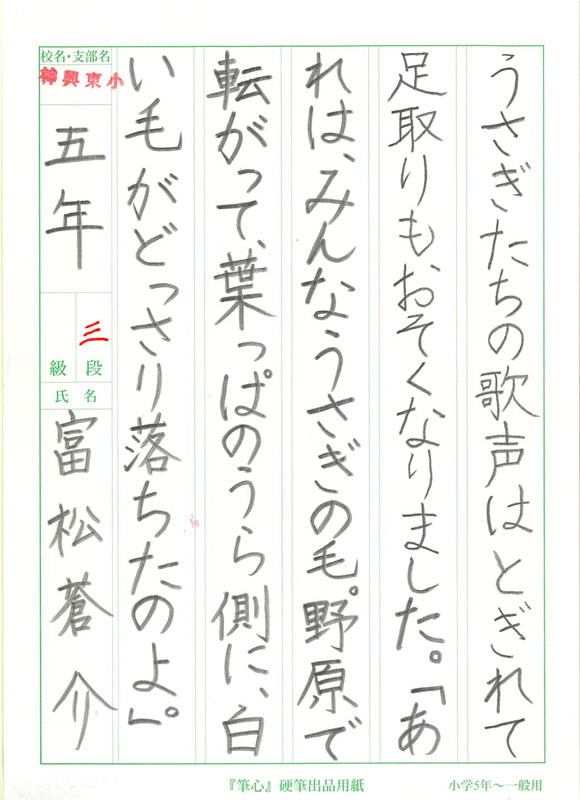 うさぎたちの歌声はとぎれて
足取りも、おそくなりました。「あ
れは、みんなうさぎの毛。野原で
転がって、葉っぱのうら側に、白
い毛がどっさり落ちたのよ」。
校名・支部名
神興東小
五年
三
段
級
氏名
富松蒼介
『筆心』硬筆出品用紙
小学5年～一般用